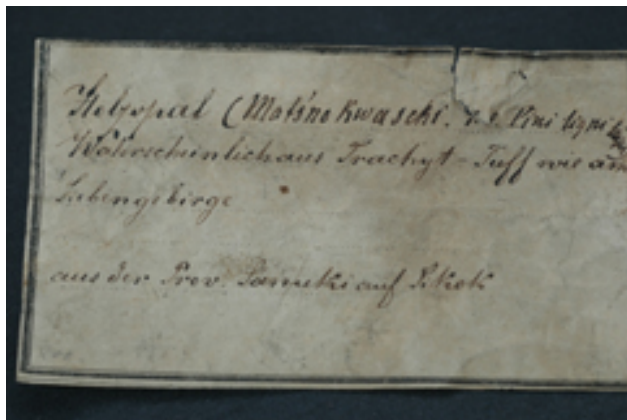 Holzopal (Matsno kwaseki. d. i. Pini ligni
Wahrscheinlich aus Trachyt-Tuff wie am
Siebengebirge
aus der Prov. Sanuki auf Sikok